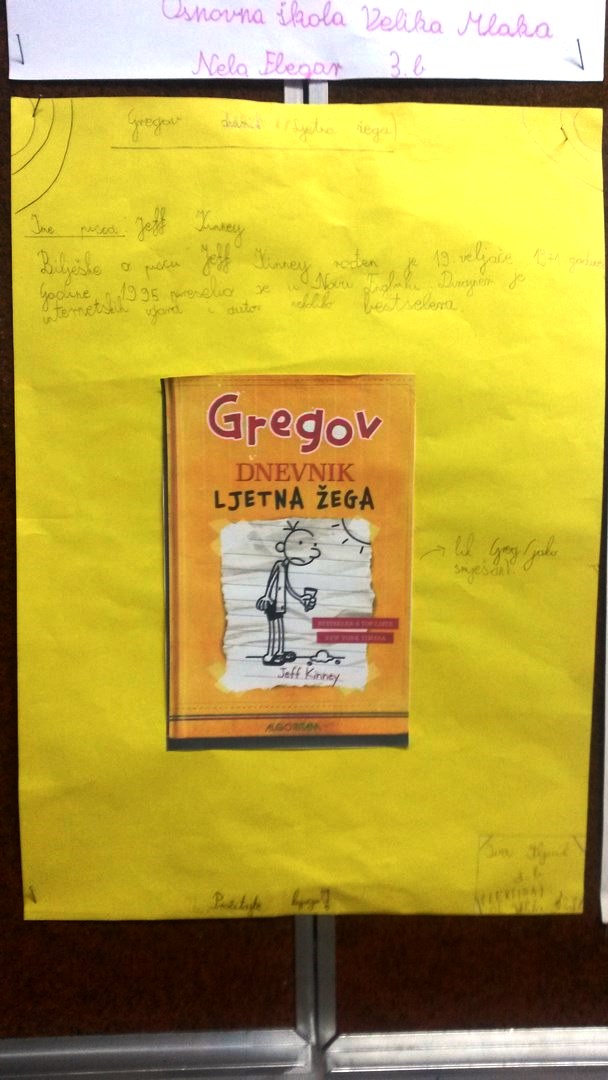 Osnovna škola Velika Mlaka
Nela Elegar 3. b
Gregov (Ljetna žega)
Ime pisca: Jeff Kinney
Bilješke o piscu Jeff Kinney rođen je 19. veljače
Godine 1995 preselio se u Novu Englesku. Dizajner je
internetskih igara i autor nekoliko bestselera
Gregov
DNEVNIK
LJETNA ŽEGA
BESTSELER S TOP LISTE
NEW YORK TIMESA
Jeff Kinney
ALGORITAM
lik Greg (jako
smiješan)
3. b